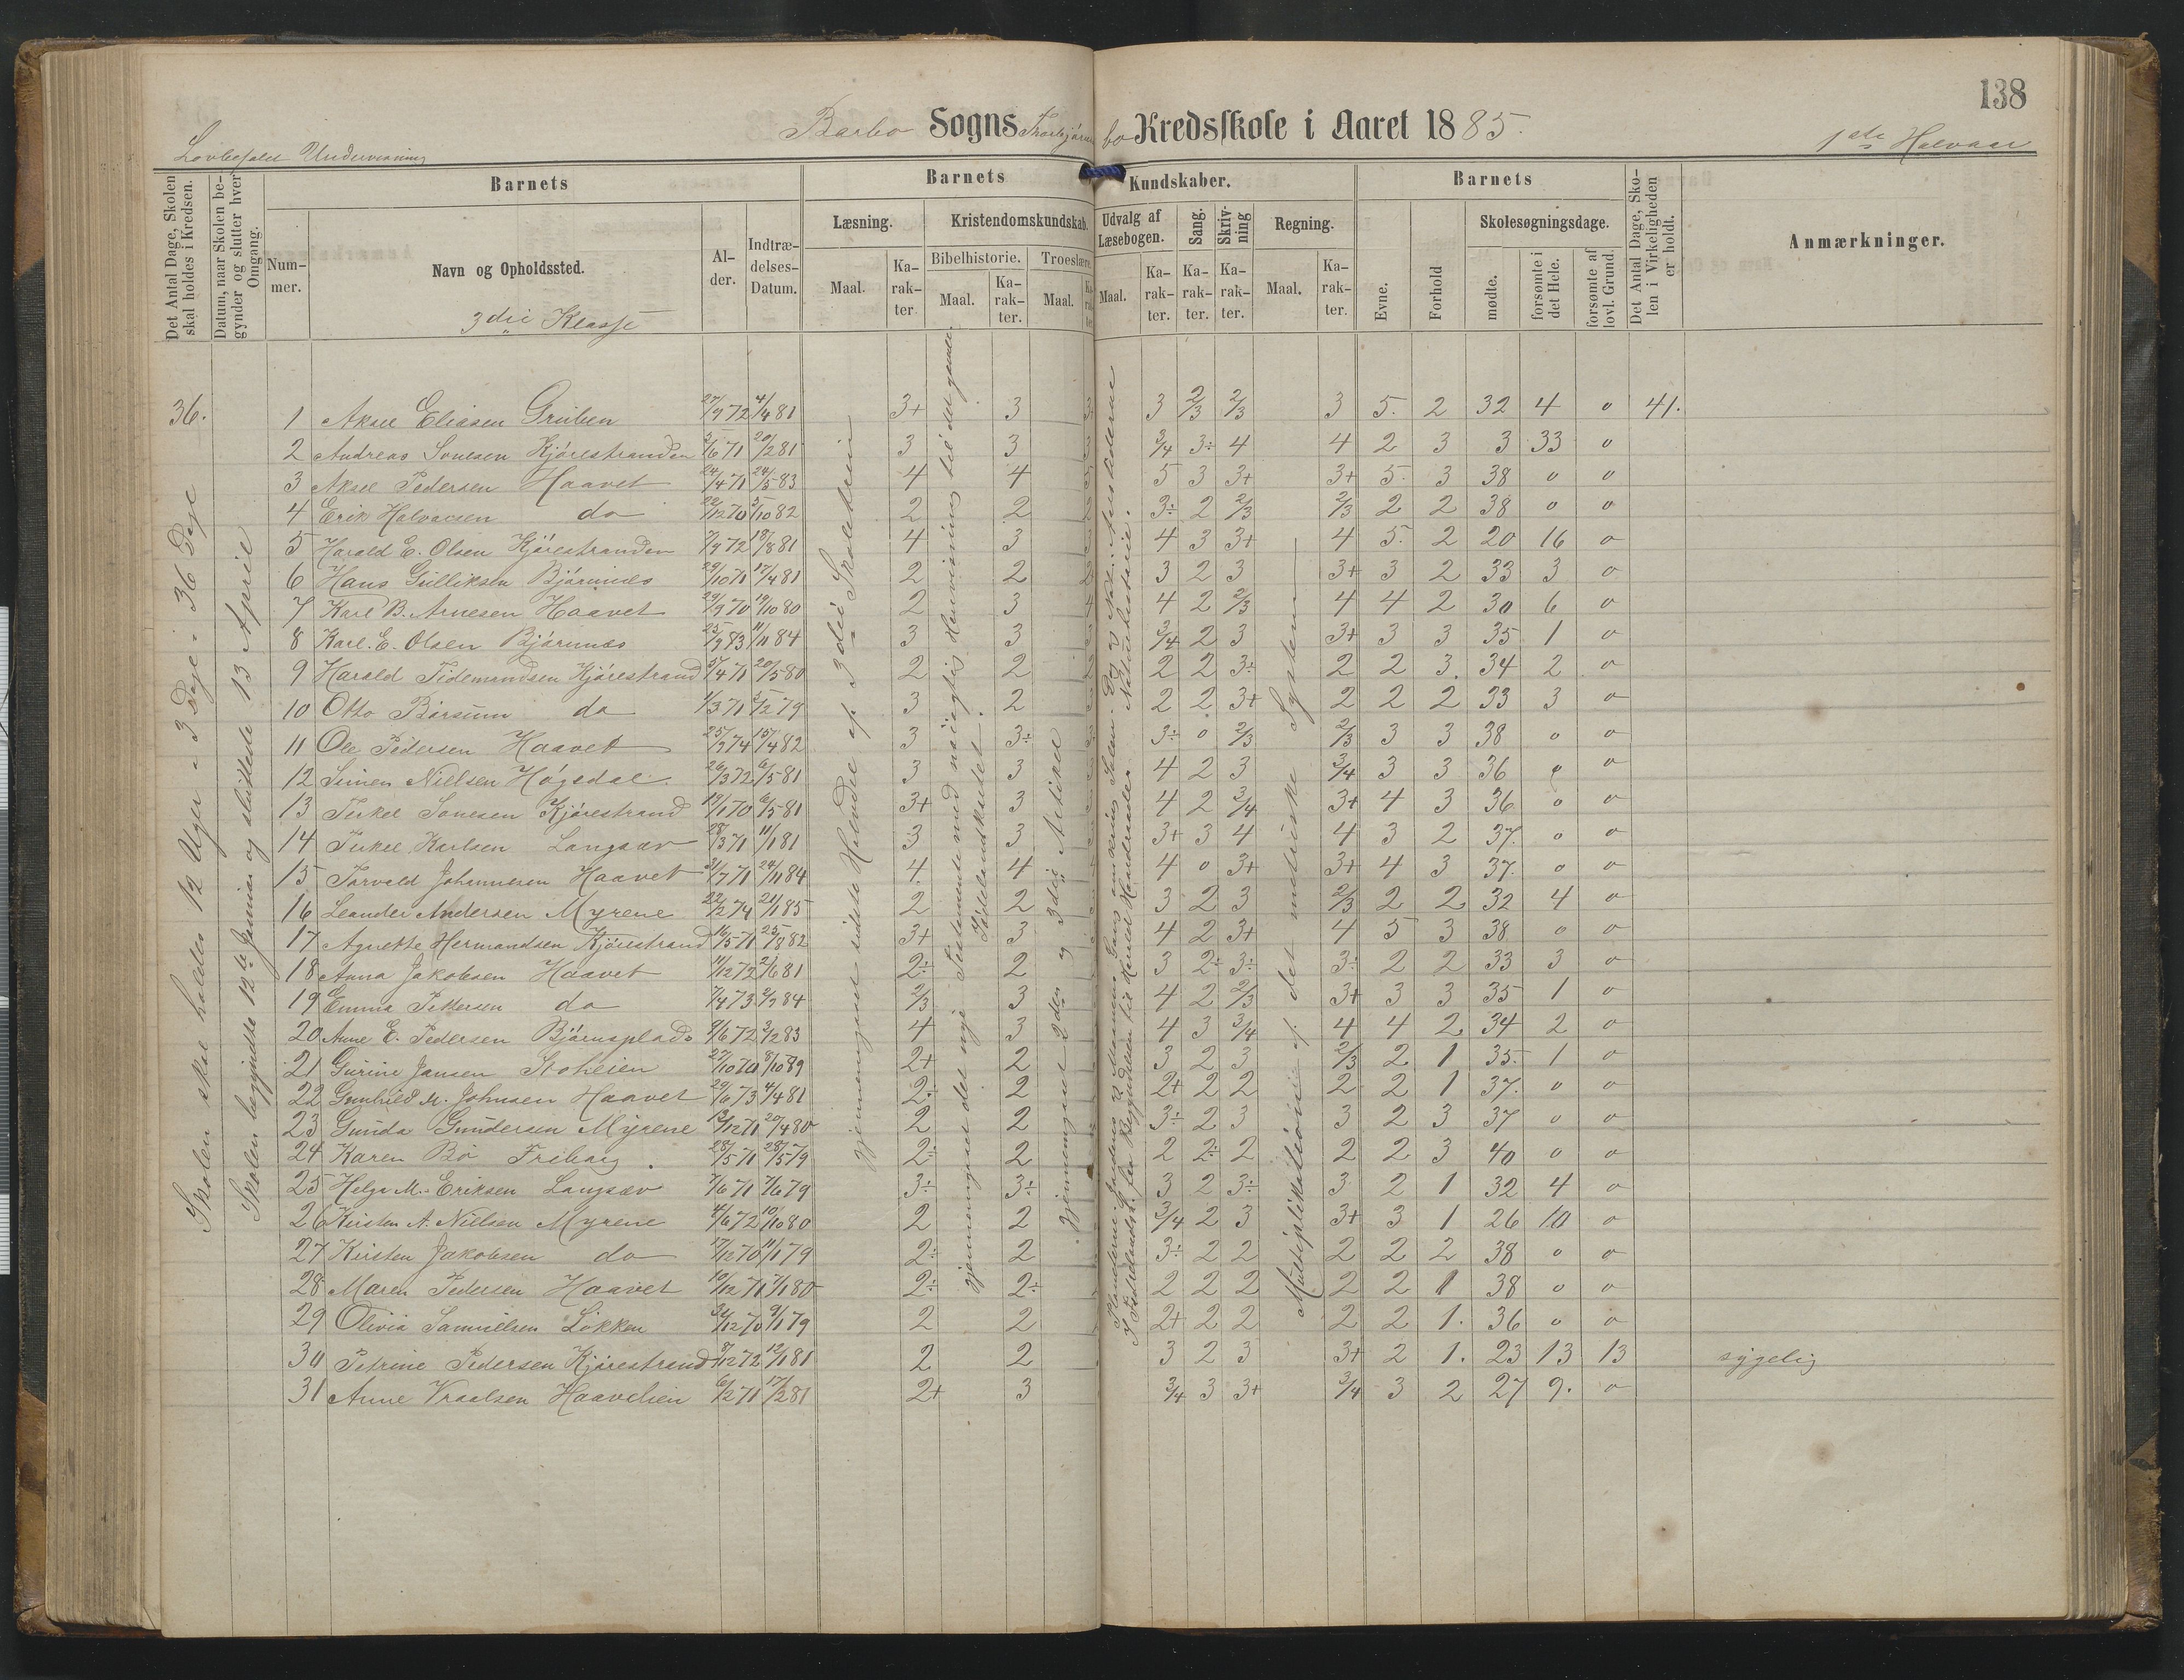 138
Barbo Sogns bo Kredsskole i Aaret 1885.
Lovbefalet Undervisning
1ste Halvaar
Det Antal Dage, Skolen skal holdes i Kredsen.
Datum, naar Skolen begynder og slutter hver Omgang.
Barnets
Nummer.
Navn og Opholdssted.
3die Klasse
Alder.
Indtrædelses-Datum.
Barnets Kundskaber.
Læsning.
Maal.
Karakter.
Kristendomskundskab.
Bibelhistorie.
Maal.
Karakter.
Troeslære.
Maal.
Karakter
Udvalg af Læsebogen.
Maal.
Karakter.
Sang.
Karakter.
Skrivning
Karakter.
Regning.
Maal.
Karakter.
Barnets
Evne.
Forhold
Skolesøgningsdage.
mødte.
forsømte i det Hele.
forsømte af lovl. Grund
Det Antal Dage, Skolen i Virkeligheden er holdt.
Anmærkninger.
Skolen skal holdes 12 Uger a 3 Dage = 36 Dage
Skolen begyndte 12te Januar og sluttede 13 April
gjennemgaaet sidste Halvdel af 3die Skoletrin
gjennemgaaet det nye Testamente med nøiagtig Henvisning til det gamle.
gjennemgaaet 2den og 3die Artikel
Multiplikation i det metriske System
36. 1 Aksel Eliasen Gruben 27/9 72 4/4 81 3+ 3 3 2/3 2/3 3 5. 2 32 4 0 41.
2 Andreas Sonesen Kjörestranden 2/6 71 20/2 81 3 3 3/4 3÷ 4 4 2 3 3 33 0
3 Aksel Pedersen Haavet 24/4 71 24/5 83 4 4 5 3 3+ 3+ 5. 3 38 0 0
4 Erik Halvorsen do 22/12 70 5/10 82 2 2 3÷ 2 2/3 2/3 2 2 38 0 0
5 Harald E. Olsen Kjörestranden 7/9 72 18/8 81 4 3 4 3 3+ 4 5. 2 20 16 0
6 Hans Gulliksen Björnnæs 29/10 71 17/4 81 2 2 3 2 3 3+ 3 2 33 3 0
7 Karl B. Arnesen Haavet 29/9 70 19/10 80 2 3 4 2 2/3 4 4 2 30 6 0
8 Karl. E. Olsen Björnnæs 25/9 83 11/11 84 3 3 3/4 2 3 3+ 3 3 35 1 0
9 Harald Tidemandsen Kjörestrand 5/4 71 20/5 80 2 2 2 2 3÷ 2 2 3. 34 2 0
10 Otto Börsum do 1/3 71 5/2 79 3 2 2 2 3+ 2 2 2 33 3 0
11 Ole Pedersen Haavet 25/9 74 15/4 82 3 3÷ 3÷ 0 2/3 2/3 3 3 38 0 0
12 Simen Nielsen Högedal 26/3 72 6/5 81 3 3 4 2 3 3/4 3 3 36 0 0
13 Terkel Sonesen Kjörestrand 19/1 70 6/5 81 3+ 3 4 2 3/4 3+ 4 3 36 0 0
14 Terkel Karlsen Langsæv 28/3 71 11/1 81 3 3 3+ 3 4 4 3 2 37. 0 0
15 Torvald Johannesen Haavet 31/7 71 24/11 84 4. 4 4 0 3+ 3+ 4 3 37. 0 0
16 Leander Andersen Myrene 22/12 74 21/1 85 2 2 3 2 3 2/3 2 2 32 4 0
17 Agnethe Hermandsen Kjörestrand 16/5 71 25/8 82 3+ 3 4 2 3+ 4 5 3 38 0 0
18 Anna Jakobsen Haavet 11/12 72 2/6 81 2÷ 2 3 2÷ 3÷ 3÷ 2 2 33 3 0
19 Emma Pettersen do 7/4 73 2/2 84 2/3 3 4 2 2/3 3+ 3 3 35 1 0
20 Anne E. Pedersen Björnsplads 9/6 72 3/12 83 4 3 4 3 3/4 4 4 2 34 2 0
21 Gurine Jansen Stoheien 27/10 70 8/10 89 2+ 2 3 2 3 2/3 2 1 35. 1 0
22 Gunhild M. Johnsen Haavet 29/6 73 4/4 81 2÷ 2 2+ 2 2 2 2 1 37. 0 0
23 Gunda Gundersen Myrene 13/12 71 20/4 80 2 2 3÷ 2 3 3 2 3 37 0 0
24 Karen Bö Friborg 28/5 71 28/5 79 2÷ 2 2 2÷ 2 2 2 3 40 0 0
25 Helga M. Eriksen Langsæv 7/6 71 7/6 79 3÷ 3÷ 3 2 3÷ 3 2 1 32 4 0
26 Kirsten A. Nielsen Myrene 4/6 72 10/10 80 2 2 3/4 2 3 3+ 3 1 26 10 0
27 Kirsten Jakobsen do 17/12 70 11/1 79 2÷ 2 3÷ 2 2 2 2 2 38 0 0
28 Maren Pedersen Haavet 19/12 71 7/1 80 2÷ 2÷ 2 2 2 2 2 1 38 0 0
29 Olivia Samuelsen Lökken 31/12 70 9/1 79 2 2 2+ 2 2 2 2 1. 36 0 0
30 Petrine Pedersen Kjörestrand 8/12 72 12/1 81 2 2 3 2 3 3+ 2 1. 23 13 13 sygelig
31 Anne Vraalsen Haavelien 6/2 71 17/2 81 2+ 3 3/4 3 3+ 3/4 3 2 27 9. 0